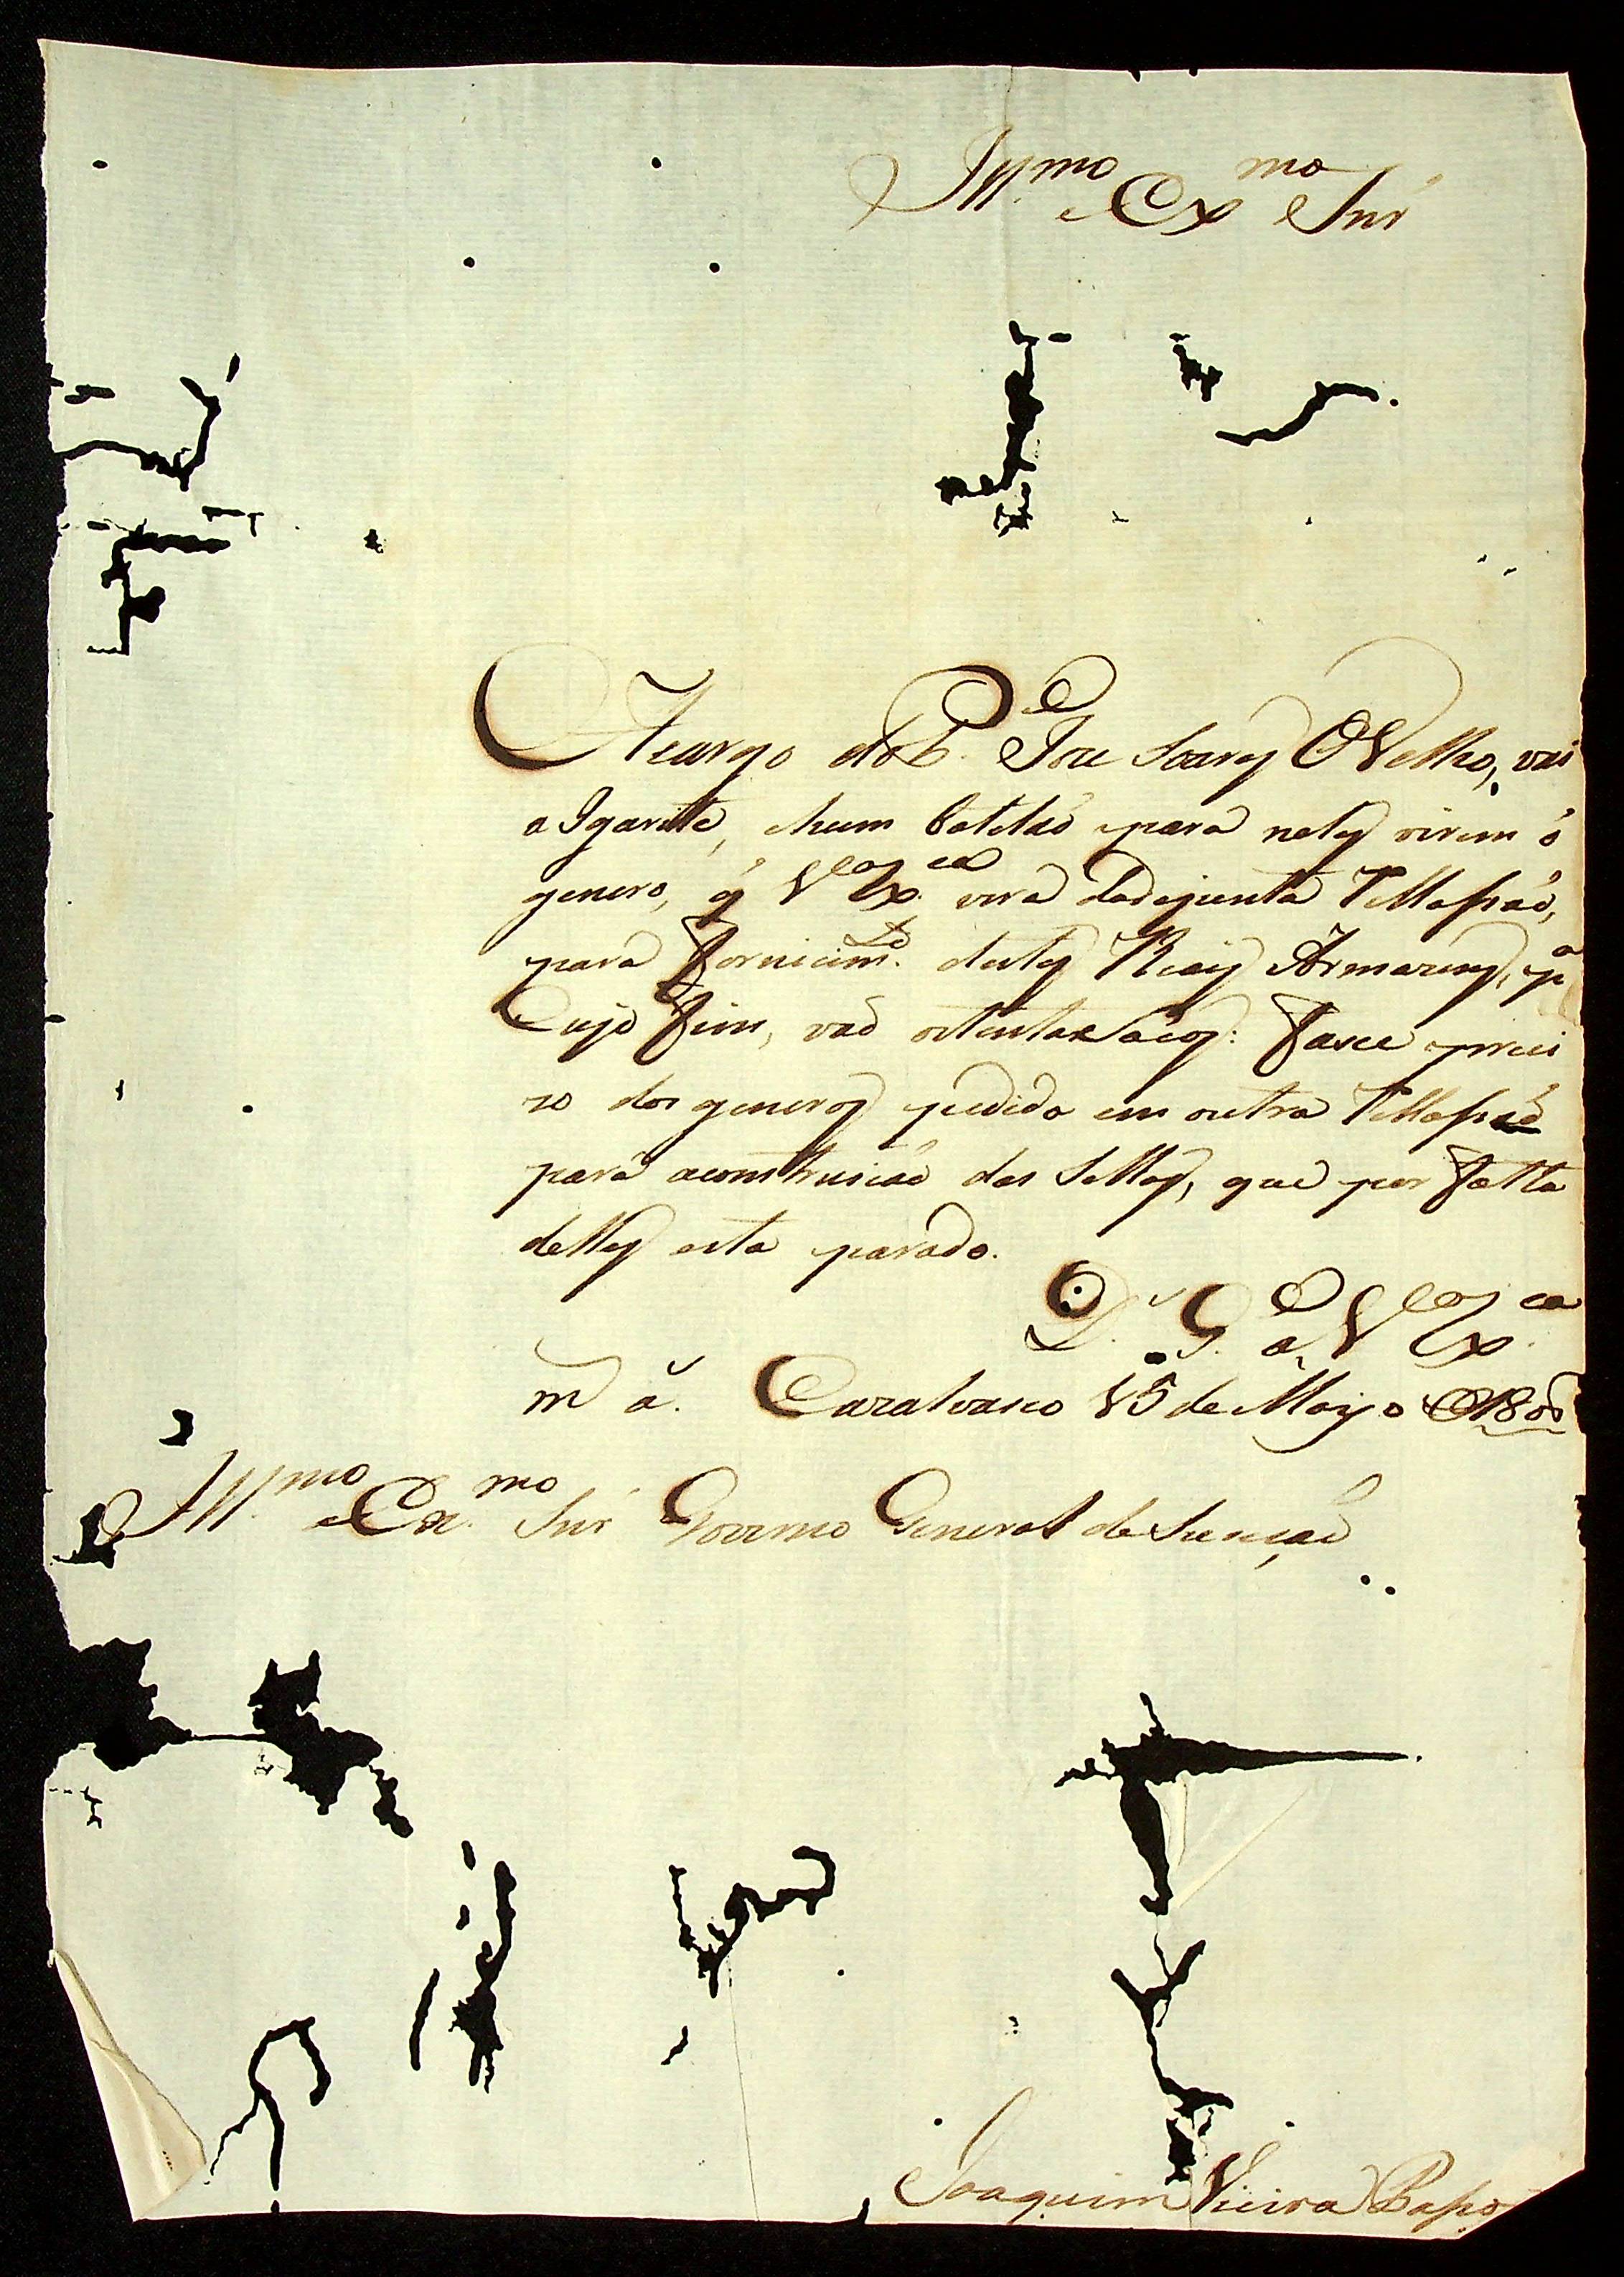 Ill.mo e Ex.mo Snr̃
Acargo do P.e Joze Soares Velho, vai
a Igarite, ehum batelaõ para neles virem ó
genero, q̃ V.as Ex.ca vera dadejunta Rellasaõ,
para fornicim.to destes Reais Armazens, p.a
Cujo fim, vaõ outentaSacos: fasce preci
zo dos generos pedido em outra Rellasaõ
para aconstrusiaõ das Sellas, que por falta
delles esta parado.
D.s G.e a V.as Ex.ca
m.s a.s Cazalvasco 15 de Mayo
Ill.mo e Ex.mo Snr̃ Governo General de Suncçaõ
Joaquim Vieira Passos